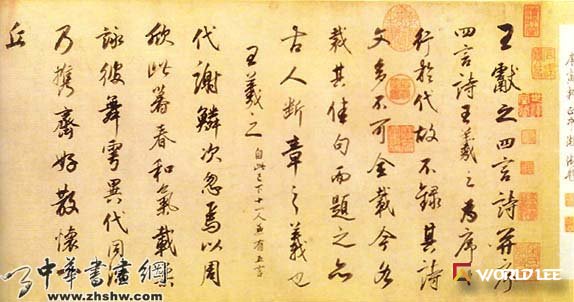 王獻之四言詩并序
四言詩王羲之為序
行於代故不錄其詩
文多不可全載今各
裁其佳句而題之亦
古人斷章之義也
王羲之 自此已下十一人並有五言
代謝鱗次忽焉以周
欣此暮春和氣載柔
詠彼舞雩異代同流
乃攜齊好散懷
丘
中華書畫網
www.zhshw.com
WORLD LEE